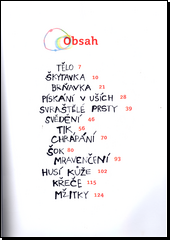 Obsah
TĚLO 7
ŠKYTAVKA 10
BRŇAVKA 21
PÍSKÁNÍ V UŠÍCH 28
SVRAŠTĚLÉ PRSTY 39
SVĚDĚNÍ 46
TIK 58
CHRÁPÁNÍ 70
ŠOK 80
MRAVENČENÍ 93
HUSÍ KŮŽE 102
KŘEČE 115
MŽITKY 124